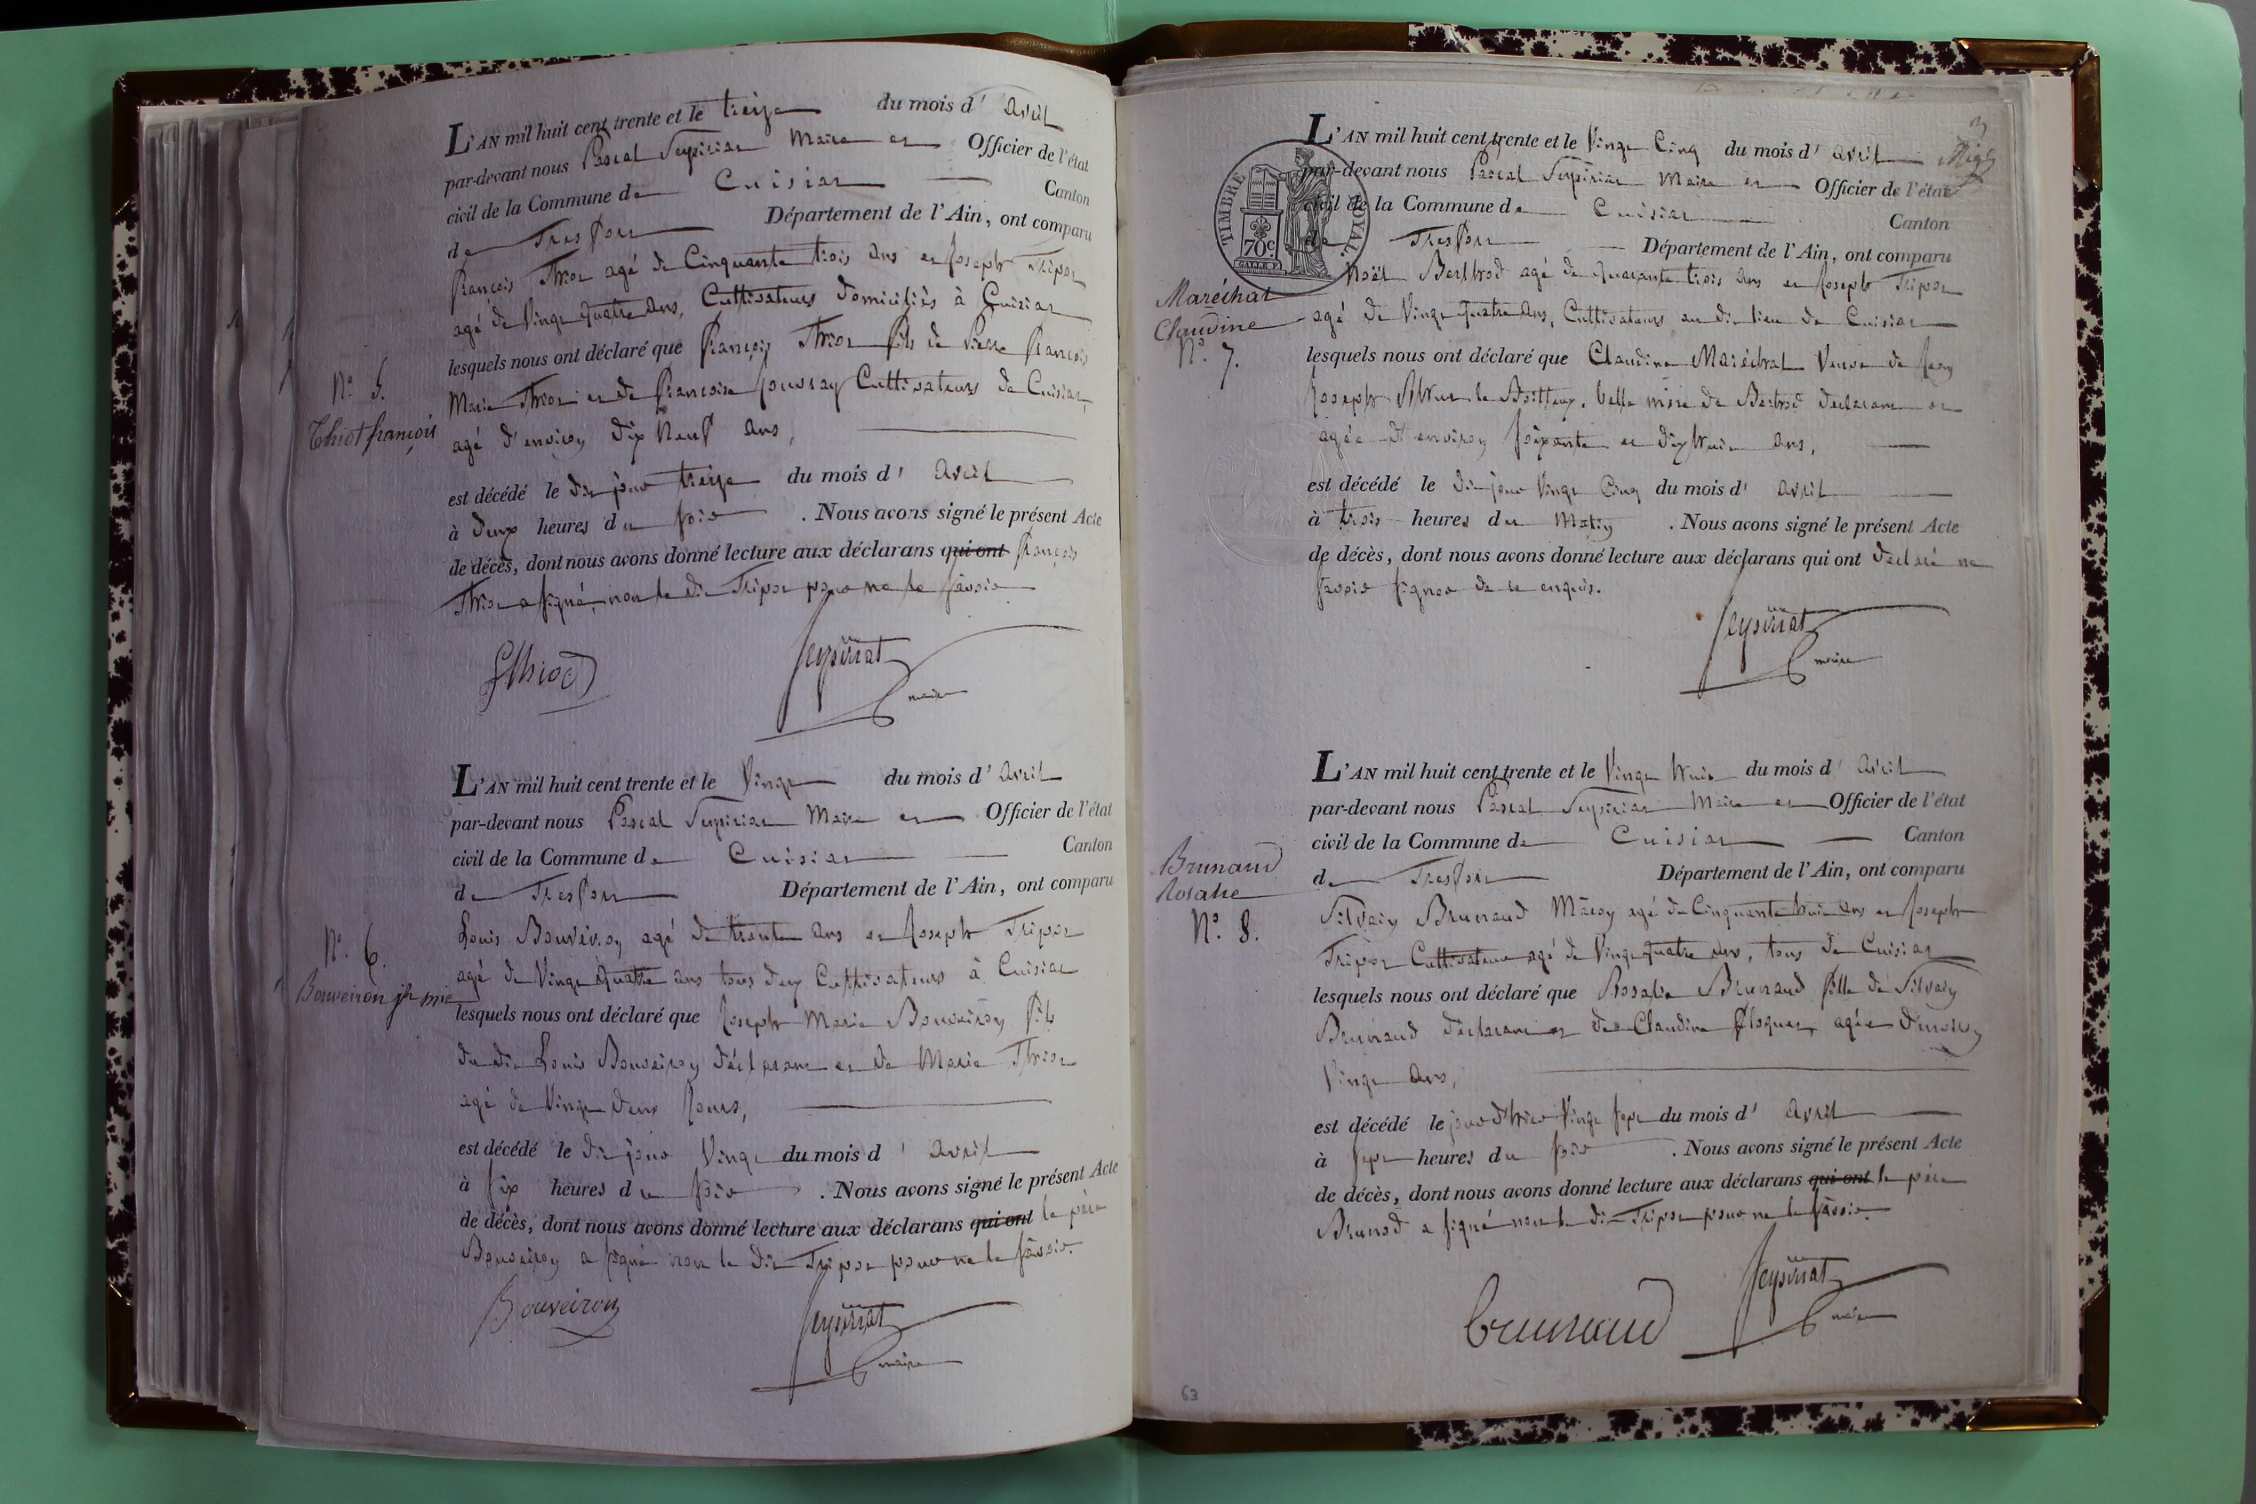 L'AN mil huit cent trente et le treize du mois d' avril
par-devant nous Pascal Seysiriat Maire et Officier de l'état
civil de la Commune de Cuisiat Canton
de Treffort Département de l'Ain, ont comparu
françois Thiot agé de Cinquante trois ans et Joseph Tripoz
agé de Vingt quatre ans, Cultivateurs domiciliés à Cuisiat
lesquels nous ont déclaré que françois Thiot fils de Pierre françois
N.° 5.
Thiot françois
Marie Thiot et de françoise Cultivateurs de Cuisiat,
agé d'environ dix neuf ans,
est décédé le dit jour treize du mois d' avril
à deux heures du soir . Nous avons signé le présent Acte
de décès, dont nous avons donné lecture aux déclarans qui ont françois
Thiot a signé, non le dit Tripoz pour ne le savoir
fThiot Seysiriat
maire
L'AN mil huit cent trente et le Vingt du mois d' avril
par-devant nous Pascal Seysiriat Maire et Officier de l'état
civil de la Commune de Cuisiat Canton
de Treffort Département de l'Ain, ont comparu
Louis Bouveiron agé de trente ans et Joseph Tripoz
N.° 6.
Bouveiron jh mie
agé de Vingt quatre ans tous deux Cultivateurs à Cuisiat
lesquels nous ont déclaré que Joseph Marie Bouveiron fils
du dit Louis Bouveiron déclarant et de Marie Thiot
agé de Vingt deux Jours,
est décédé le dit jour Vingt du mois d' avril
à six heures du soir . Nous avons signé le présent Acte
de décès, dont nous avons donné lecture aux déclarans qui ont le père
Bouveiron a signé non le dit Tripoz pour ne le savoir.
Bouveiron Seysiriat
maire
L'AN mil huit cent trente et le Vingt Cinq du mois d' avril
par-devant nous Pascal Seysiriat Maire et Officier de l'état
civil de la Commune de Cuisiat Canton
de Treffort Département de l'Ain, ont comparu
TIMBRE ROYAL.
70 c.
Noël Berthod agé de quarante trois ans et Joseph Tripoz
Maréchal
Claudine
N.° 7.
agé de Vingt quatre ans, Cultivateurs au dit lieu de Cuisiat
lesquels nous ont déclaré que Claudine Maréchal Veuve de Jean
Joseph le Boitteux, belle mère de Berthod déclarant et
agée d'environ soixante et dix huit ans,
est décédé le dit jour Vingt Cinq du mois d' avril
à trois heures du Matin . Nous avons signé le présent Acte
de décès, dont nous avons donné lecture aux déclarans qui ont déclaré ne
savoir signer de ce enquis.
Seysiriat
maire
L'AN mil huit cent trente et le Vingt huit du mois d' avril
par-devant nous Pascal Seysiriat Maire et Officier de l'état
civil de la Commune de Cuisiat Canton
de Treffort Département de l'Ain, ont comparu
Brunaud
Rosalie
N.° 8.
Silvain Brunaud Maçon agé de Cinquante huit ans et Joseph
Tripoz Cultivateur agé de Vingt quatre ans, tous de Cuisiat
lesquels nous ont déclaré que Rosalie Brunaud fille de Silvain
Brunaud déclarant et de Claudine agée d'environ
Vingt ans,
est décédé le jour d'hier Vingt sept du mois d' avril
à sept heures du soir . Nous avons signé le présent Acte
de décès, dont nous avons donné lecture aux déclarans qui ont le père
Brunod a signé non le dit Tripoz pour ne le savoir.
Brunaud Seysiriat
maire
63